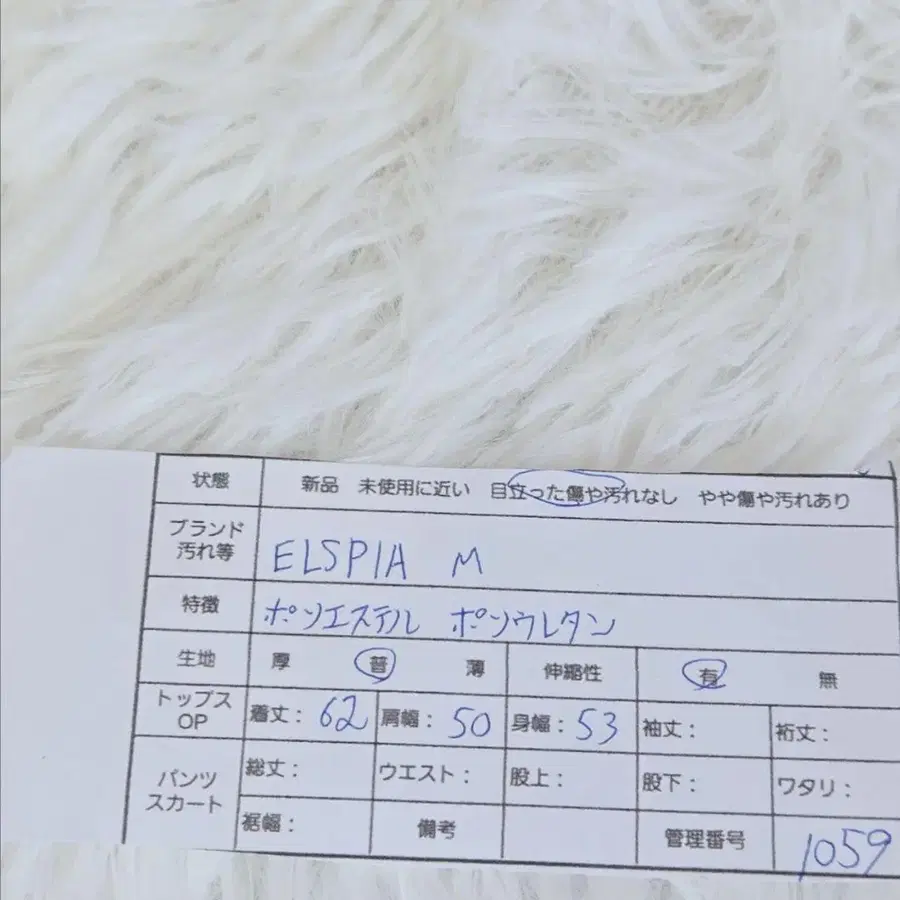 状態 新品 未使用に近い 目立った傷や汚れなし やや傷や汚れあり
ブランド
汚れ等 ELSPIA M
特徴 ポリエステル ポリウレタン
生地 厚 普 薄 伸縮性 有 無
トップス
OP 着丈: 62 肩幅: 50 身幅: 53 袖丈: 裄丈:
パンツ
スカート 総丈: ウエスト: 股上: 股下: ワタリ:
裾幅: 備考 管理番号 1059